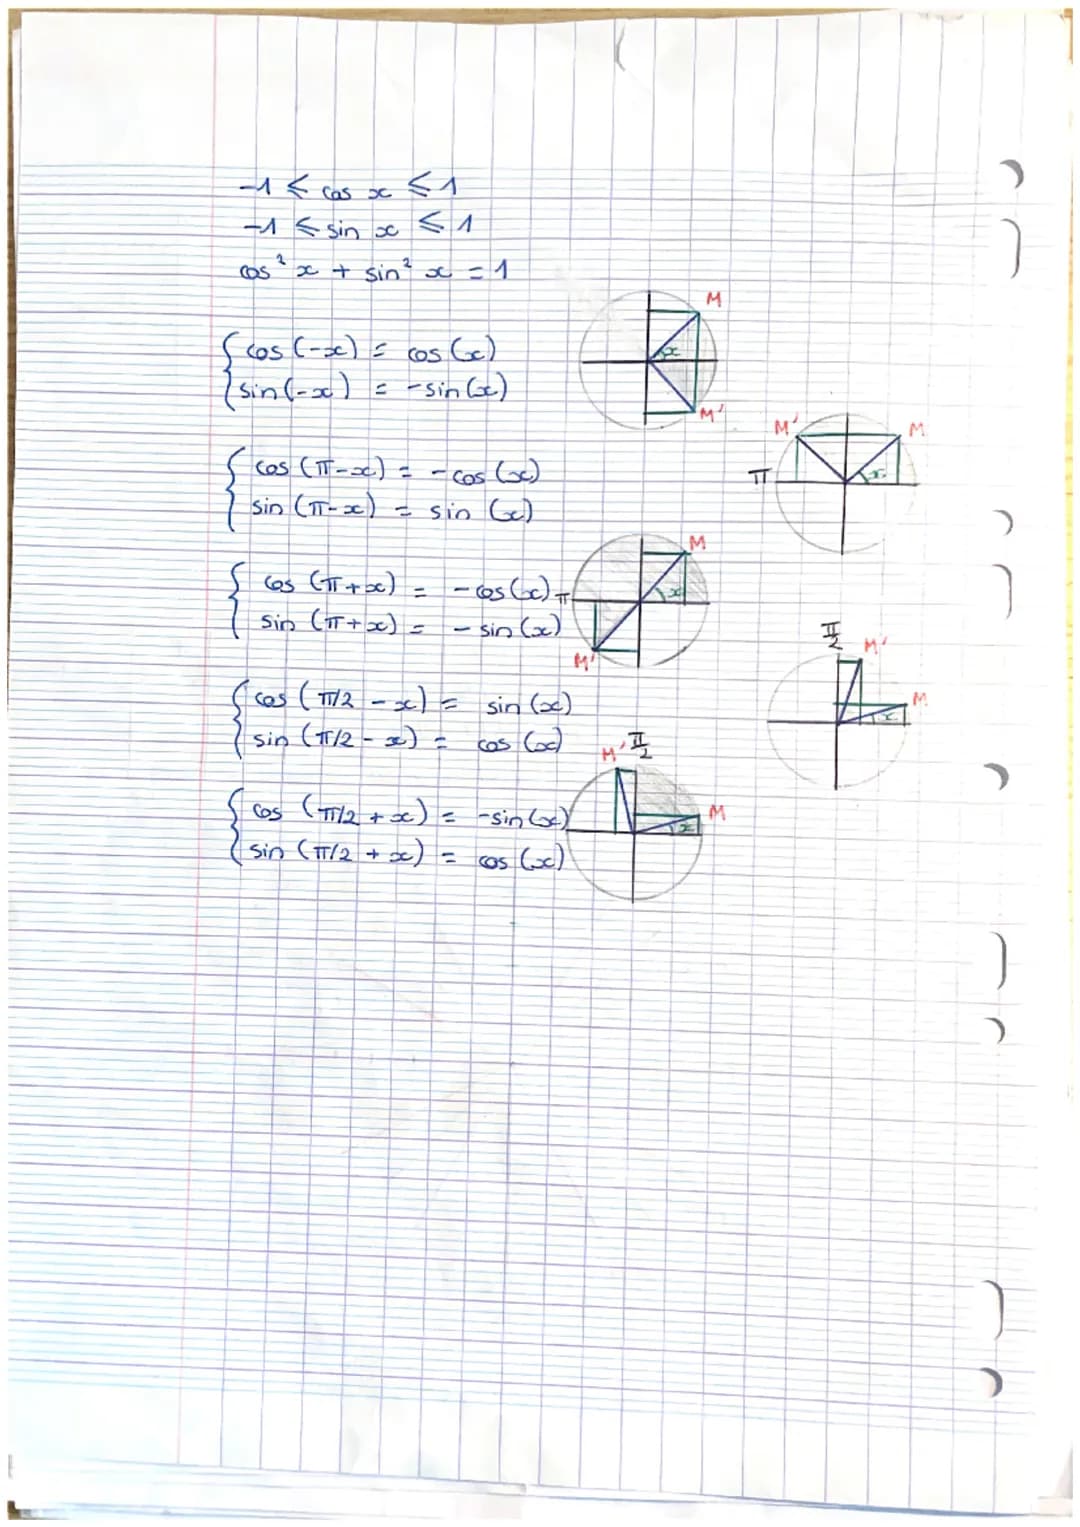 -1 ⩽ cos x ⩽ 1
-1 ⩽ sin x ⩽ 1
cos² x + sin² x = 1
M
x
{ cos (-x) = cos (x)
sin (-x) = -sin (x)
M'
M' M
{ cos (π-x) = -cos (x)
π x
sin (π-x) = sin (x)
M
{ cos (π+x) = -cos (x) π x
sin (π+x) = -sin (x)
M'
π/2 M'
{ cos (π/2 - x) = sin (x)
M
x
sin (π/2 - x) = cos (x)
M' π/2
{ cos (π/2 + x) = -sin (x)
M
x
sin (π/2 + x) = cos (x)